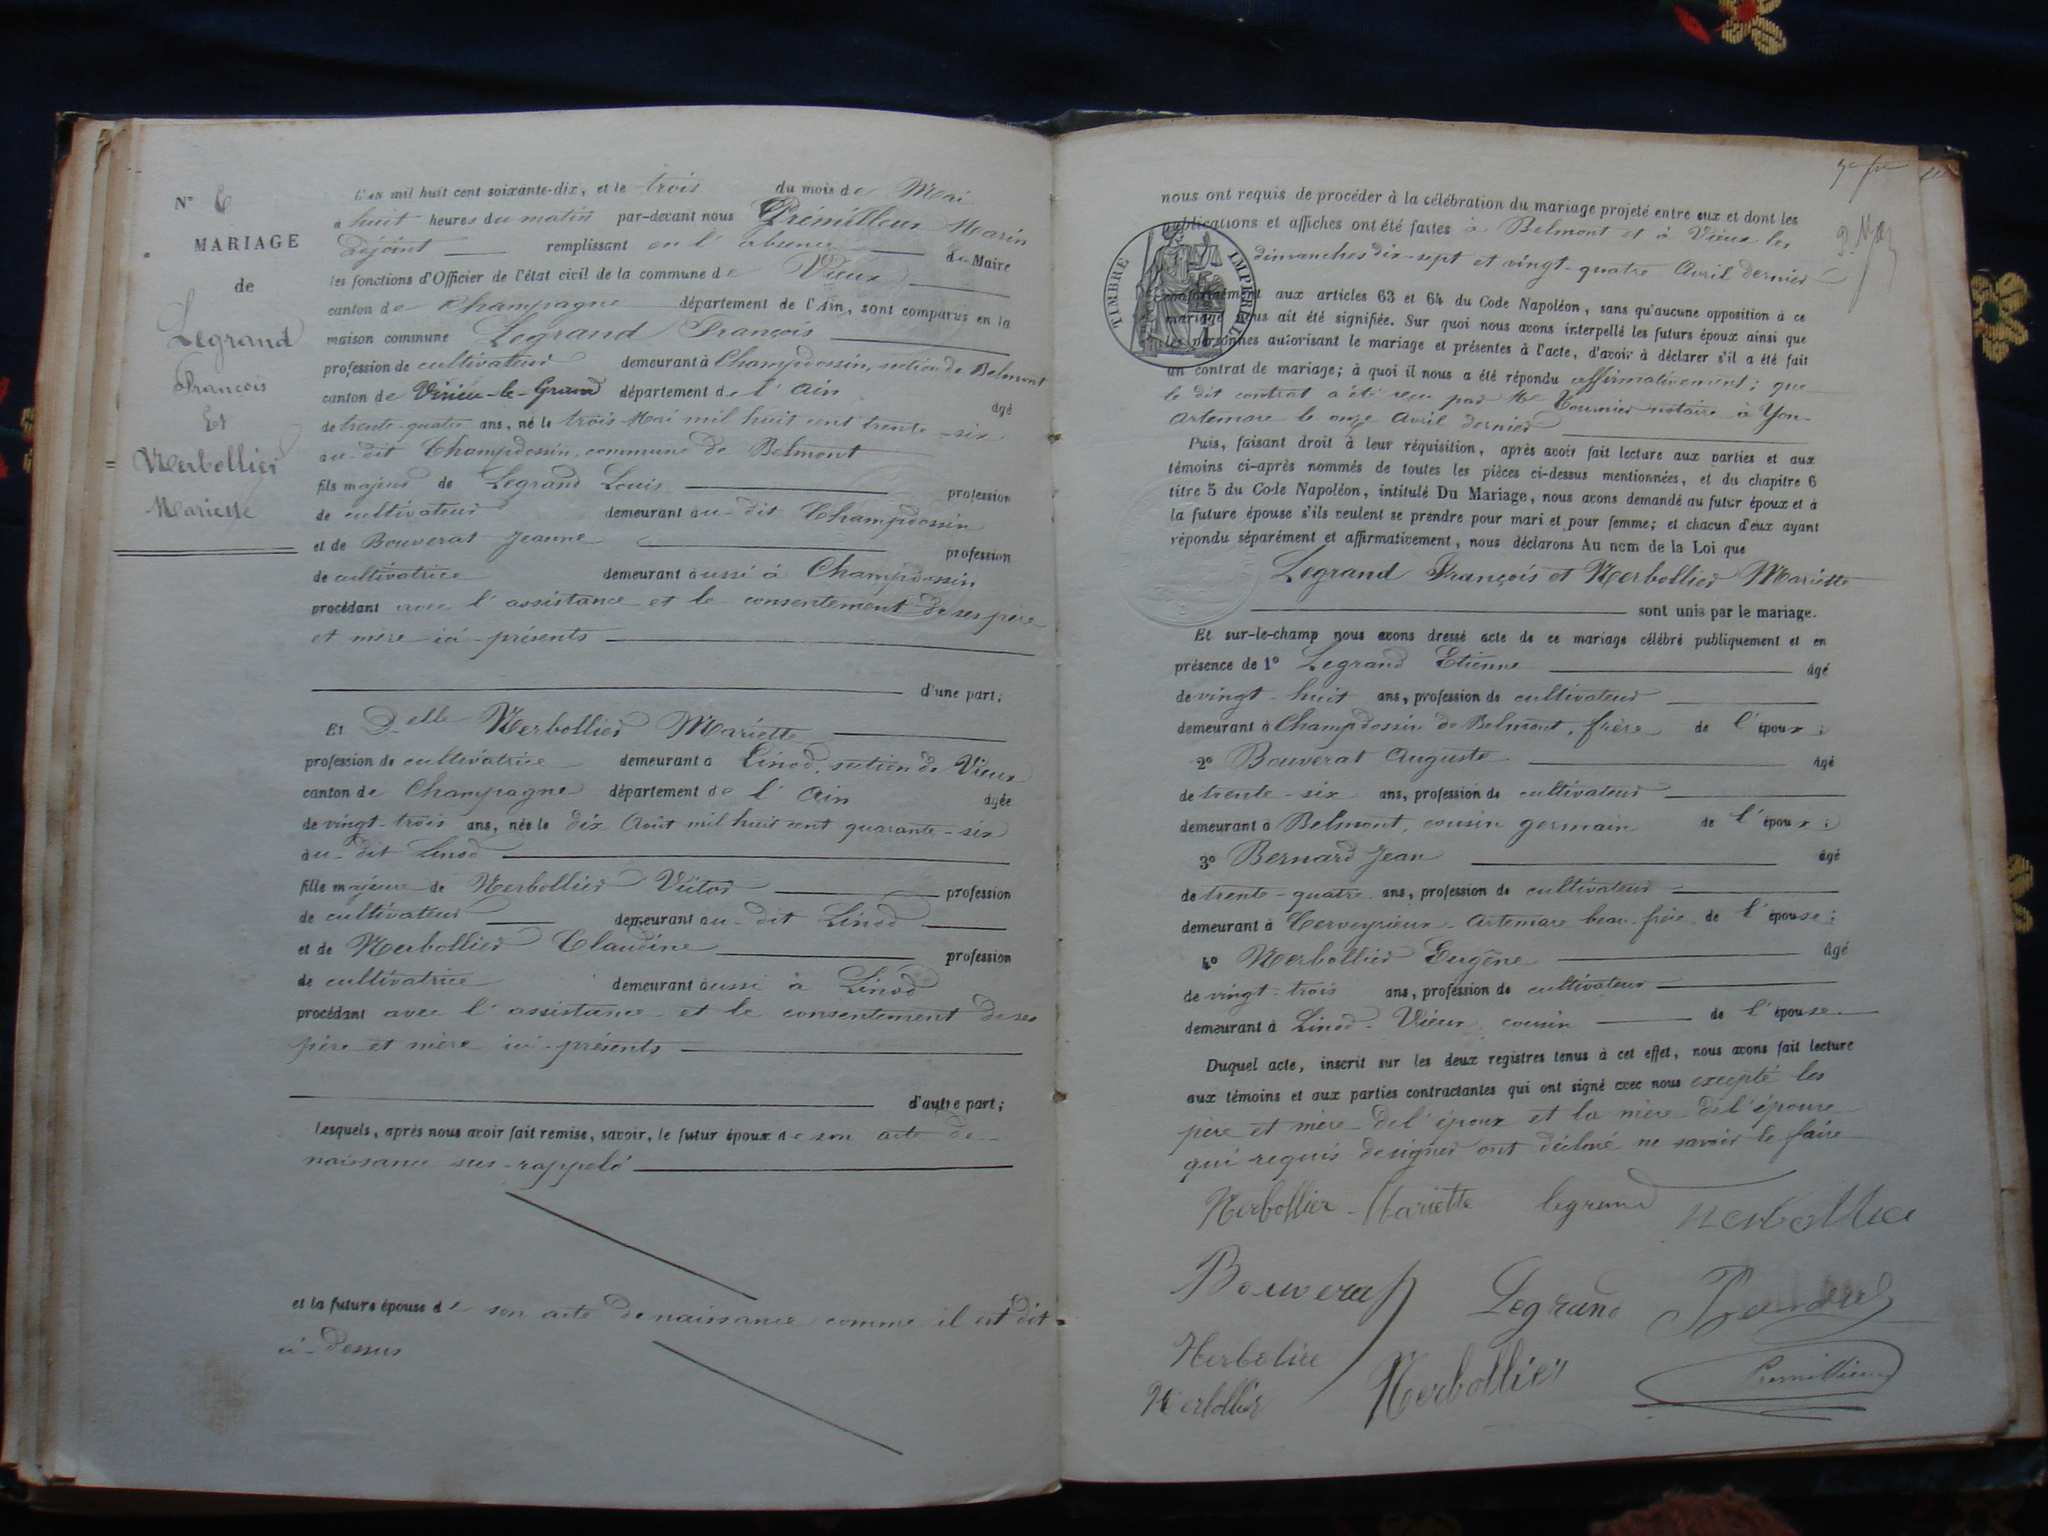 N° 6
MARIAGE
de
Legrand
François
Et
Nerbollier
Mariette
L'an mil huit cent soixante-dix, et le trois du mois de Mai
à huit heures du matin par-devant nous Prémillieux Marin
adjoint remplissant en l'absence de Maire
les fonctions d'Officier de l'état civil de la commune de Vieux
canton de Champagne département de l'Ain, sont comparus en la
maison commune Legrand François
profession de cultivateur demeurant à Champdossin, section de Belmont
canton de Virieu-le-Grand département de l'Ain âgé
de trente-quatre ans, né le trois Mai mil huit cent trente-six
au-dit Champdossin, commune de Belmont
fils majeur de Legrand Louis profession
de cultivateur demeurant au-dit Champdossin
et de Bouverat Jeanne profession
de cultivatrice demeurant aussi à Champdossin
procédant avec l'assistance et le consentement de ses père
et mère ici-présents
d'une part;
Et Delle Nerbollier Mariette
profession de cultivatrice demeurant à Linod, section de Vieux
canton de Champagne département de l'Ain âgée
de vingt-trois ans, née le dix Août mil huit cent quarante-six
au-dit Linod
fille majeure de Nerbollier Victor profession
de cultivateur demeurant au-dit Linod
et de Nerbollier Claudine profession
de cultivatrice demeurant aussi à Linod
procédant avec l'assistance et le consentement de ses
père et mère ici-présents
d'autre part;
lesquels, après nous avoir fait remise, savoir, le futur époux de son acte de
naissance sus-rappelé
et la future épouse de son acte de naissance comme il est dit
ci-dessus
nous ont requis de procéder à la célébration du mariage projeté entre eux et dont les
publications et affiches ont été faites à Belmont et à Vieux les
dimanches dix-sept et vingt-quatre Avril dernier
TIMBRE IMPÉRIAL
conformément aux articles 63 et 64 du Code Napoléon, sans qu'aucune opposition à ce
mariage nous ait été signifiée. Sur quoi nous avons interpellé les futurs époux ainsi que
les personnes autorisant le mariage et présentes à l'acte, d'avoir à déclarer s'il a été fait
un contrat de mariage; à quoi il nous a été répondu affirmativement; que
le dit contrat a été reçu par Me Tournier notaire à Yon-
Artemare le onze Avril dernier
Puis, faisant droit à leur réquisition, après avoir fait lecture aux parties et aux
témoins ci-après nommés de toutes les pièces ci-dessus mentionnées, et du chapitre 6
titre 5 du Code Napoléon, intitulé Du Mariage, nous avons demandé au futur époux et à
la future épouse s'ils veulent se prendre pour mari et pour femme; et chacun d'eux ayant
répondu séparément et affirmativement, nous déclarons Au nom de la Loi que
Legrand François et Nerbollier Mariette
sont unis par le mariage.
Et sur-le-champ nous avons dressé acte de ce mariage célébré publiquement et en
présence de 1° Legrand Etienne âgé
de vingt-huit ans, profession de cultivateur
demeurant à Champdossin de Belmont, frère de l'époux;
2° Bouverat Auguste âgé
de trente-six ans, profession de cultivateur
demeurant à Belmont, cousin germain de l'époux;
3° Bernard Jean âgé
de trente-quatre ans, profession de cultivateur
demeurant à Cerveyrieux-Artemare beau-frère de l'épouse;
4° Nerbollier Eugène âgé
de vingt-trois ans, profession de cultivateur
demeurant à Linod-Vieux cousin de l'épouse.
Duquel acte, inscrit sur les deux registres tenus à cet effet, nous avons fait lecture
aux témoins et aux parties contractantes qui ont signé avec nous excepté les
père et mère de l'époux et la mère de l'épouse
qui requis de signer ont déclaré ne savoir le faire
Nerbollier Mariette legrand Nerbollier
Bouverat Legrand
Nerbollier
Nerbollier
Premillieux